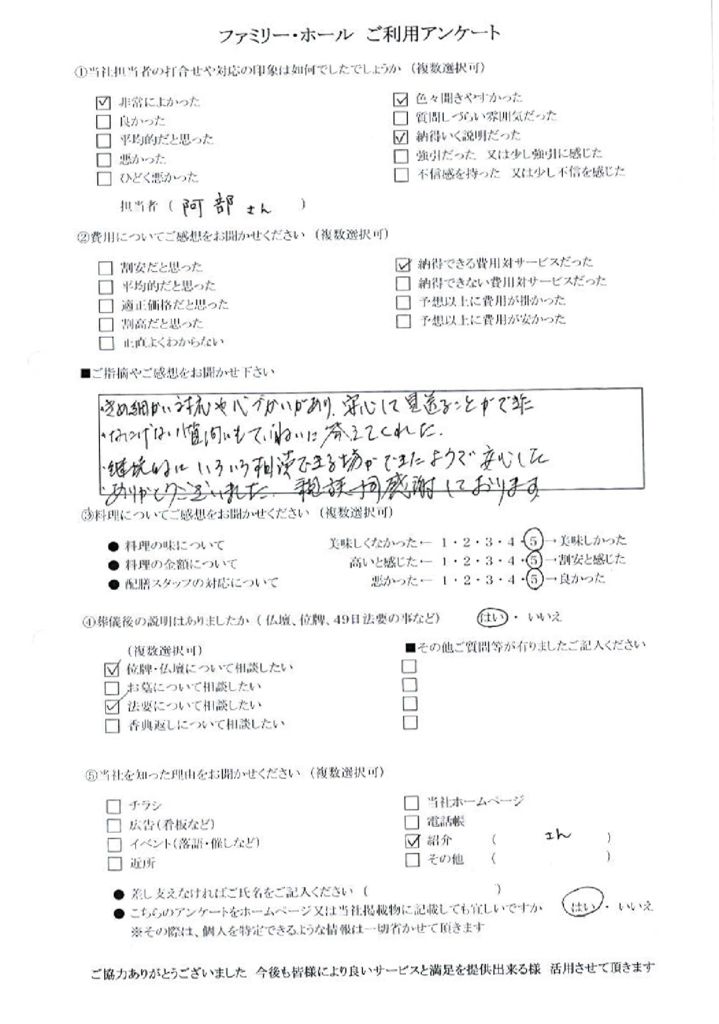 ファミリー・ホール ご利用アンケート
①当社担当者の打合せや対応の印象は如何でしたでしょうか (複数選択可)
☑ 非常によかった ☑ 色々聞きやすかった
☐ 良かった ☐ 質問しづらい雰囲気だった
☐ 平均的だと思った ☑ 納得いく説明だった
☐ 悪かった ☐ 強引だった 又は少し強引に感じた
☐ ひどく悪かった ☐ 不信感を持った 又は少し不信を感じた
担当者 ( 阿部さん )
②費用についてご感想をお聞かせください (複数選択可)
☐ 割安だと思った ☑ 納得できる費用対サービスだった
☐ 平均的だと思った ☐ 納得できない費用対サービスだった
☐ 適正価格だと思った ☐ 予想以上に費用が掛かった
☐ 割高だと思った ☐ 予想以上に費用が安かった
☐ 正直よくわからない
■ご指摘やご感想をお聞かせ下さい
・きめ細かい対応や心づかいがあり、安心して見送ることができた
・なにげない質問にもていねいに答えてくれた.
・継続的にいろいろ相談できる場ができたようで安心した
・ありがとうございました. 親族一同感謝しております
③料理についてご感想をお聞かせください (複数選択可)
● 料理の味について 美味しくなかった← 1・2・3・4・5→美味しかった
● 料理の金額について 高いと感じた← 1・2・3・4・5→割安と感じた
● 配膳スタッフの対応について 悪かった← 1・2・3・4・5→良かった
④葬儀後の説明はありましたか (仏壇、位牌、49日法要の事など) はい・いいえ
(複数選択可) ■その他ご質問等が有りましたご記入ください
☑ 位牌・仏壇について相談したい ☐
☐ お墓について相談したい ☐
☑ 法要について相談したい ☐
☐ 香典返しについて相談したい ☐
⑤当社を知った理由をお聞かせください (複数選択可)
☐ チラシ ☐ 当社ホームページ
☐ 広告(看板など) ☐ 電話帳
☐ イベント(落語・催しなど) ☑ 紹介 ( さん )
☐ 近所 ☐ その他 ( )
● 差し支えなければご氏名をご記入ください ( )
● こちらのアンケートをホームページ又は当社掲載物に記載しても宜しいですか はい・いいえ
※その際は、個人を特定できるような情報は一切省かせて頂きます
ご協力ありがとうございました 今後も皆様により良いサービスと満足を提供出来る様 活用させて頂きます